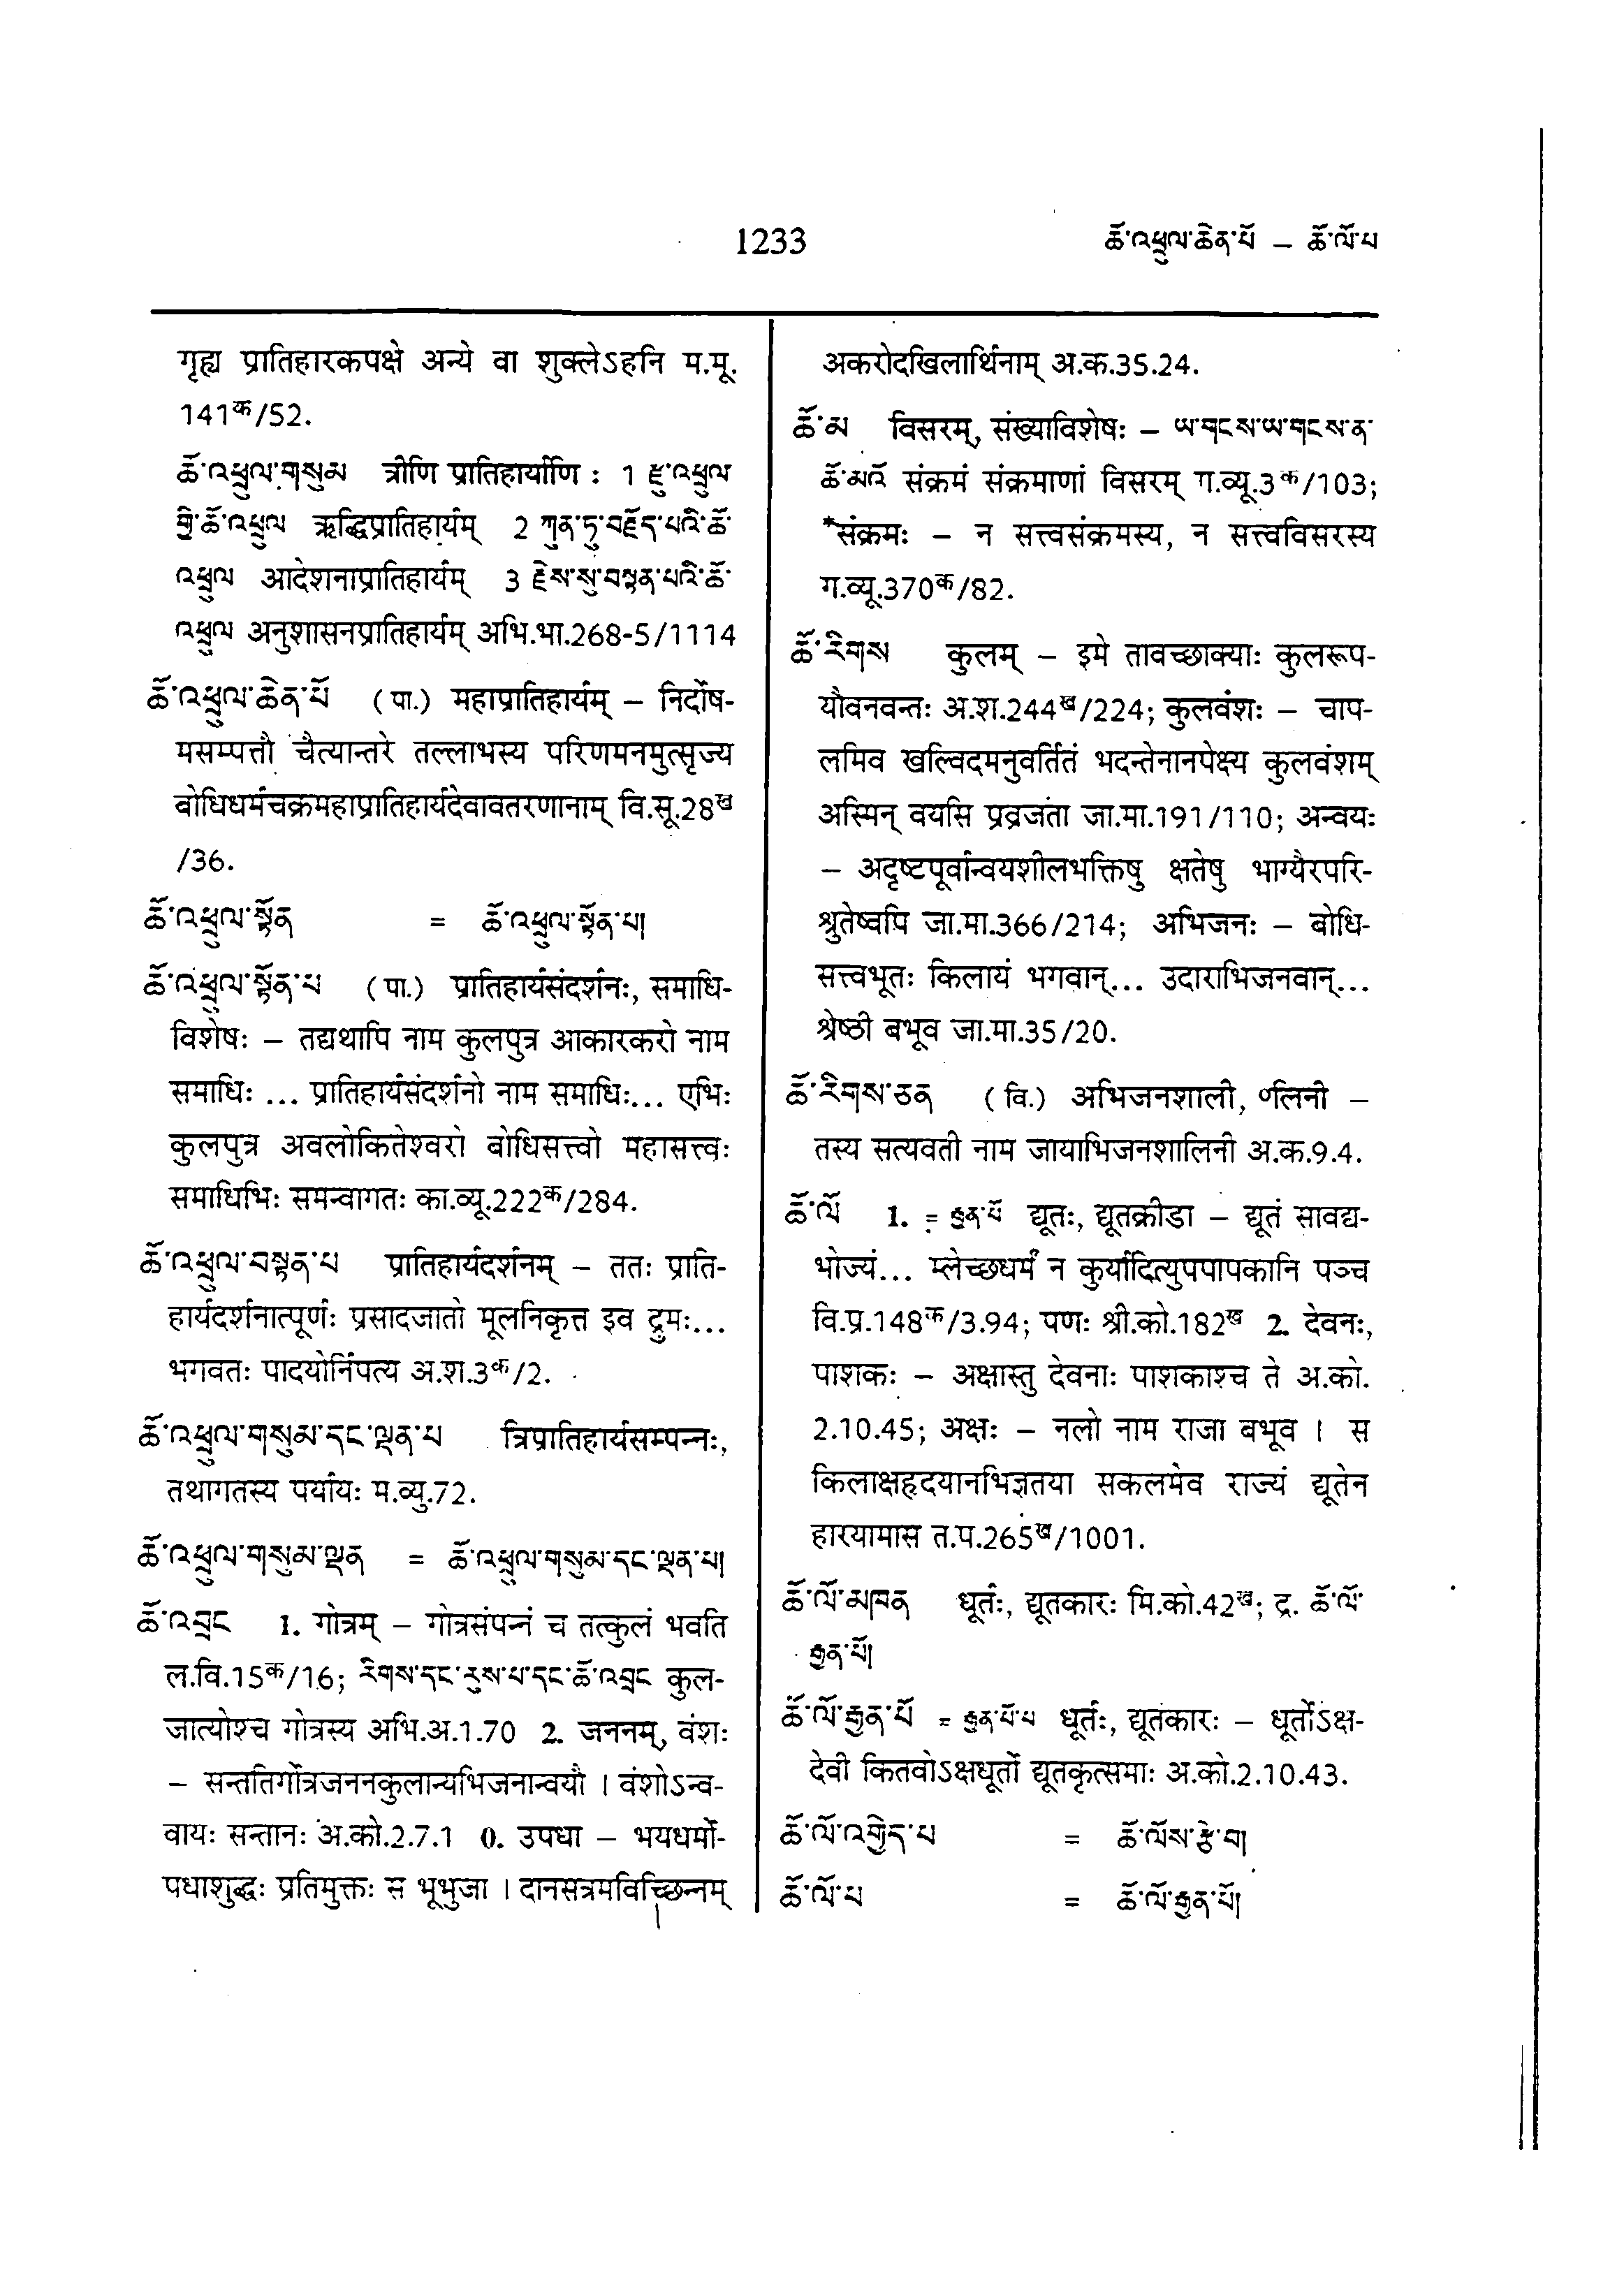 1233
ཆོ་འཕྲུལ་ཆེན་པོ – ཆོ་ལོ་པ
गृह्य प्रातिहारकपक्षे अन्ये वा शुक्लेऽहनि म.मू.
141क/52.
ཆོ་འཕྲུལ་གསུམ त्रीणि प्रातिहार्याणि : 1 རྫུ་འཕྲུལ
གྱི་ཆོ་འཕྲུལ ऋद्धिप्रातिहार्यम् 2 ཀུན་ཏུ་བརྗོད་པའི་ཆོ་
འཕྲུལ आदेशनाप्रातिहार्यम् 3 རྗེས་སུ་བསྟན་པའི་ཆོ་
འཕྲུལ अनुशासनप्रातिहार्यम् अभि.भा.268-5/1114
ཆོ་འཕྲུལ་ཆེན་པོ (पा.) महाप्रातिहार्यम् – निर्दोष-
मसम्पत्तौ चैत्यान्तरे तल्लाभस्य परिणमनमुत्सृज्य
बोधिधर्मचक्रमहाप्रातिहार्यदेवावतरणानाम् वि.सू.28ख
/36.
ཆོ་འཕྲུལ་སྟོན = ཆོ་འཕྲུལ་སྟོན་པ།
ཆོ་འཕྲུལ་སྟོན་པ (पा.) प्रातिहार्यसंदर्शनः, समाधि-
विशेषः – तद्यथापि नाम कुलपुत्र आकारकरो नाम
समाधिः ... प्रातिहार्यसंदर्शनो नाम समाधिः... एभिः
कुलपुत्र अवलोकितेश्वरो बोधिसत्त्वो महासत्त्वः
समाधिभिः समन्वागतः का.व्यू.222क/284.
ཆོ་འཕྲུལ་བསྟན་པ प्रातिहार्यदर्शनम् – ततः प्राति-
हार्यदर्शनात्पूर्णः प्रसादजातो मूलनिकृत्त इव द्रुमः...
भगवतः पादयोर्निपत्य अ.श.3क/2.
ཆོ་འཕྲུལ་གསུམ་དང་ལྡན་པ त्रिप्रातिहार्यसम्पन्नः,
तथागतस्य पर्यायः म.व्यु.72.
ཆོ་འཕྲུལ་གསུམ་ལྡན = ཆོ་འཕྲུལ་གསུམ་དང་ལྡན་པ།
ཆོ་འབྲང 1. गोत्रम् – गोत्रसंपन्नं च तत्कुलं भवति
ल.वि.15क/16; རིགས་དང་རུས་པ་དང་ཆོ་འབྲང कुल-
जात्योश्च गोत्रस्य अभि.अ.1.70 2. जननम्, वंशः
– सन्ततिर्गोत्रजननकुलान्यभिजनान्वयौ । वंशोऽन्व-
वायः सन्तानः अ.को.2.7.1 0. उपधा – भयधर्मो-
पधाशुद्धः प्रतिमुक्तः स भूभुजा । दानसत्रमविच्छिन्नम्
अकरोदखिलार्थिनाम् अ.क.35.24.
ཆོ་མ विसरम्, संख्याविशेषः – ཡ་གངས་ཡ་གངས་ན་
ཆོ་མའོ संक्रमं संक्रमाणां विसरम् ग.व्यू.3क/103;
*संक्रमः – न सत्त्वसंक्रमस्य, न सत्त्वविसरस्य
ग.व्यू.370क/82.
ཆོ་རིགས कुलम् – इमे तावच्छाक्याः कुलरूप-
यौवनवन्तः अ.श.244ख/224; कुलवंशः – चाप-
लमिव खल्विदमनुवर्तितं भदन्तेनानपेक्ष्य कुलवंशम्
अस्मिन् वयसि प्रव्रजता जा.मा.191/110; अन्वयः
– अदृष्टपूर्वान्वयशीलभक्तिषु क्षतेषु भाग्यैरपरि-
श्रुतेष्वपि जा.मा.366/214; अभिजनः – बोधि-
सत्त्वभूतः किलायं भगवान्... उदाराभिजनवान्...
श्रेष्ठी बभूव जा.मा.35/20.
ཆོ་རིགས་ཅན (वि.) अभिजनशाली, ०लिनी –
तस्य सत्यवती नाम जायाभिजनशालिनी अ.क.9.4.
ཆོ་ལོ 1. = རྒྱན་པོ द्यूतः, द्यूतक्रीडा – द्यूतं सावद्य-
भोज्यं... म्लेच्छधर्मं न कुर्यादित्युपपापकानि पञ्च
वि.प्र.148क/3.94; पणः श्री.को.182ख 2. देवनः,
पाशकः – अक्षास्तु देवनाः पाशकाश्च ते अ.को.
2.10.45; अक्षः – नलो नाम राजा बभूव । स
किलाक्षहृदयानभिज्ञतया सकलमेव राज्यं द्यूतेन
हारयामास त.प.265ख/1001.
ཆོ་ལོ་མཁན धूर्तः, द्यूतकारः मि.को.42ख; द्र. ཆོ་ལོ་
རྒྱན་པོ།
ཆོ་ལོ་རྒྱན་པོ = རྒྱན་པོ་པ धूर्तः, द्यूतकारः – धूर्तोऽक्ष-
देवी कितवोऽक्षधूर्तो द्यूतकृत्समाः अ.को.2.10.43.
ཆོ་ལོ་འགྱེད་པ = ཆོ་ལོས་རྩེ་བ།
ཆོ་ལོ་པ = ཆོ་ལོ་རྒྱན་པོ།